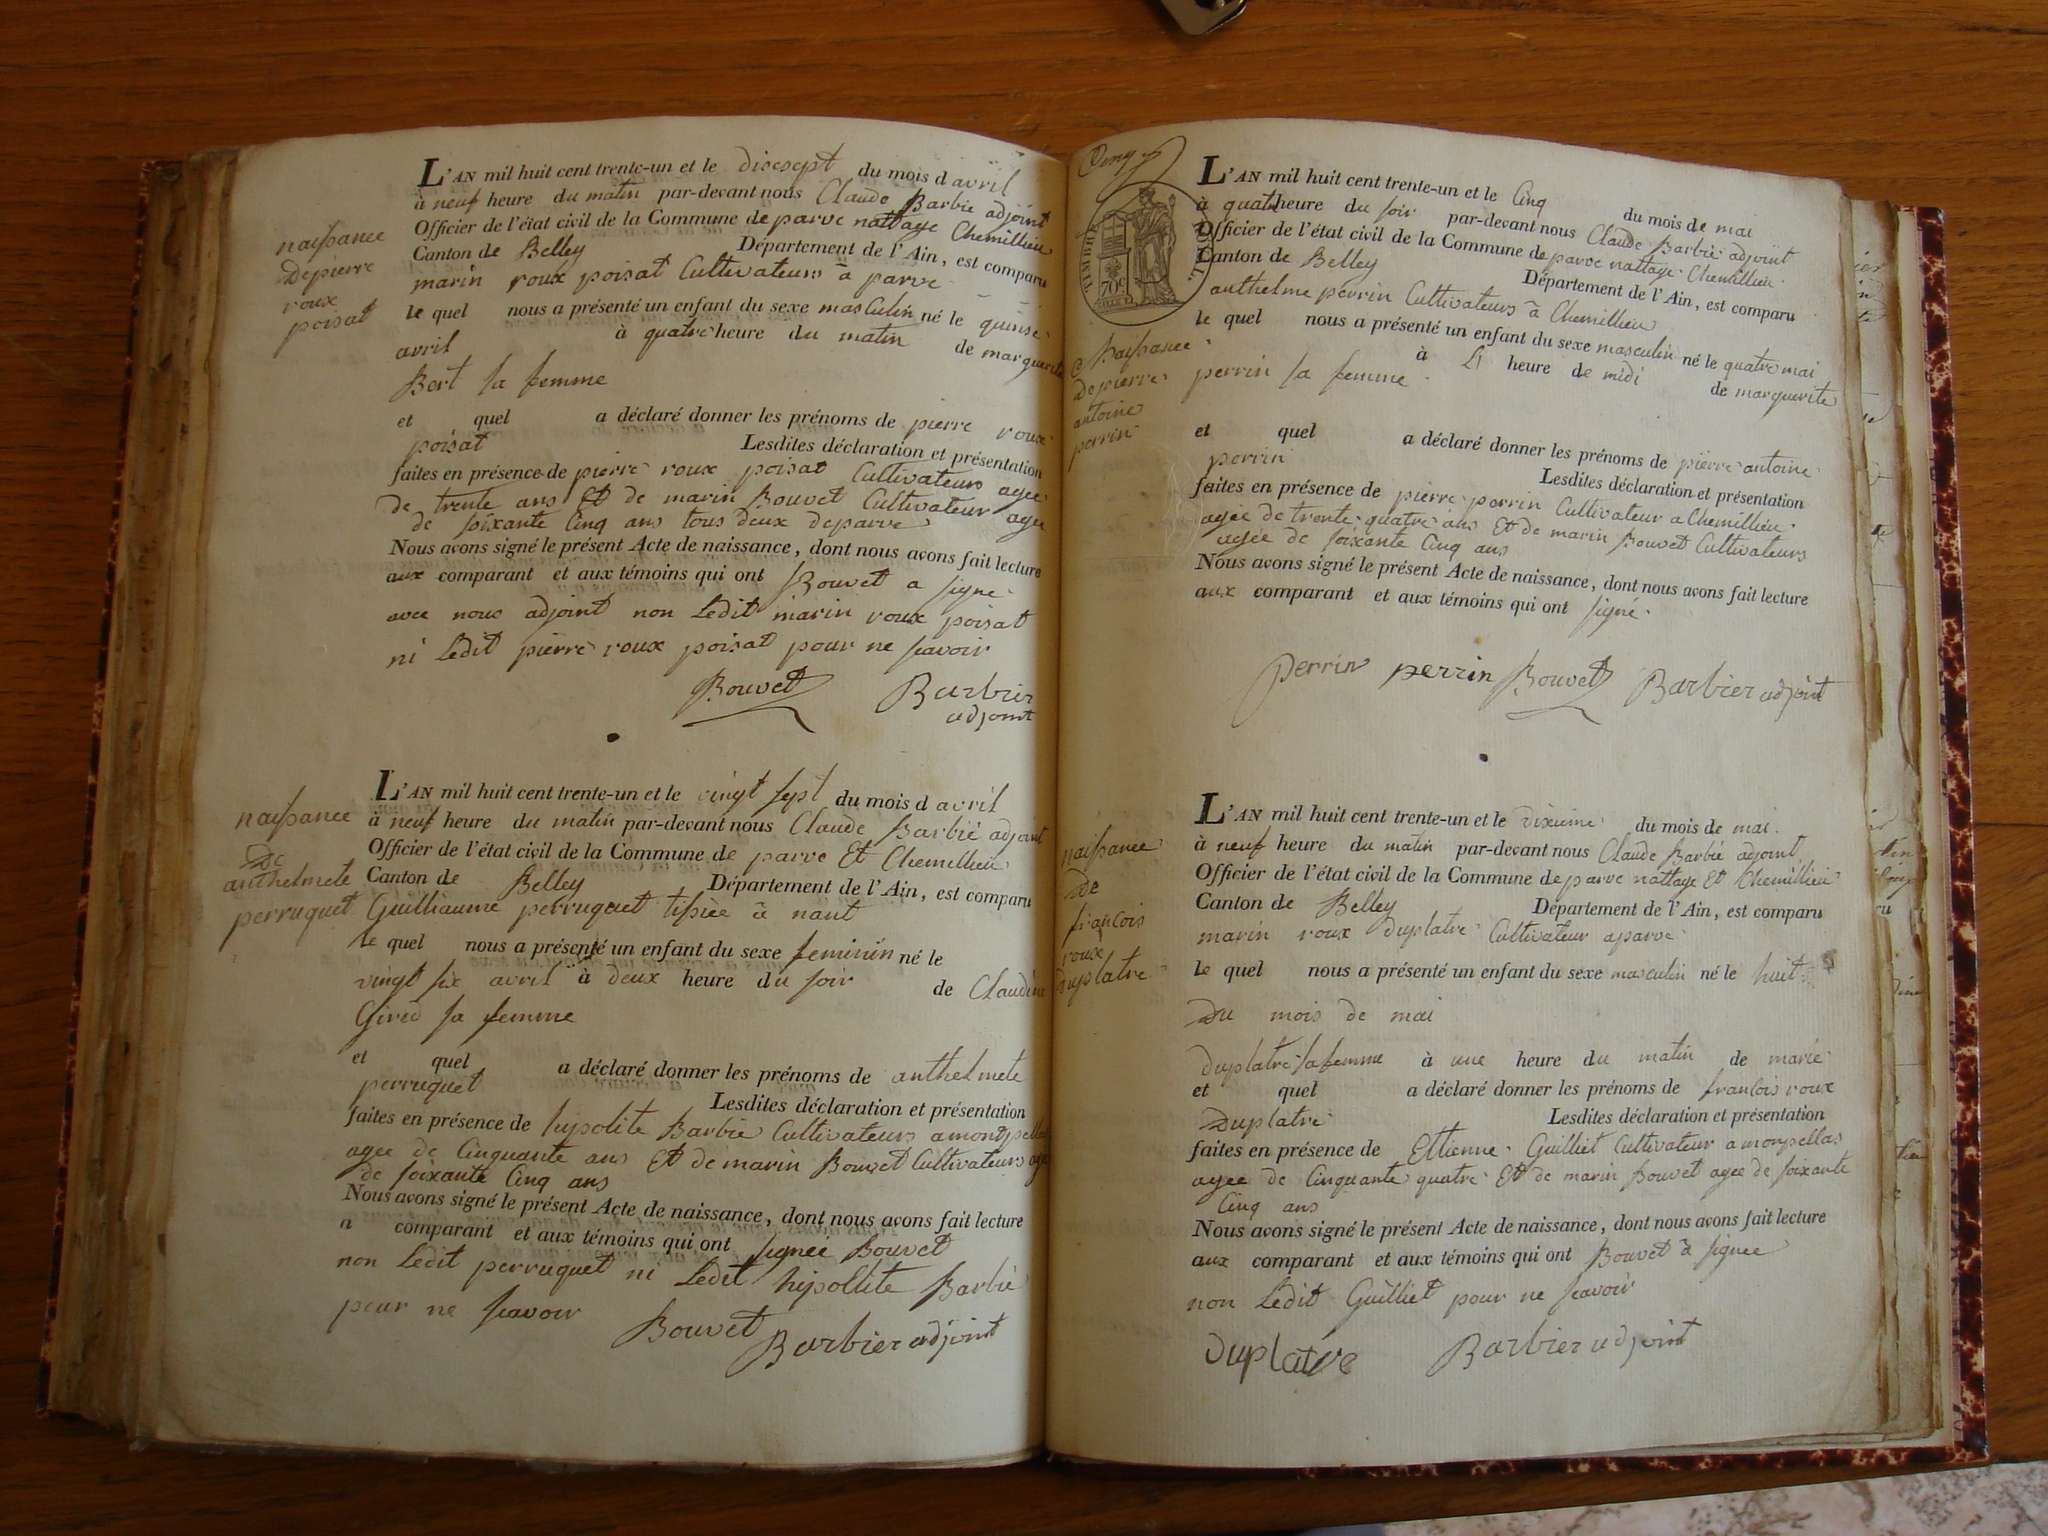 L'AN mil huit cent trente-un et le disesept du mois d avril
à neuf heure du matin par-devant nous Claude Barbié adjoint
Officier de l'état civil de la Commune de parve nattage Chemillieu
Canton de Belley Département de l'Ain, est comparu
marin roux poisat Cultivateurs à parve
le quel nous a présenté un enfant du sexe masculin né le quinse
avril à quatre heure du matin de marguerite
Bert sa femme
et quel a déclaré donner les prénoms de pierre roux
poisat Lesdites déclaration et présentation
faites en présence de pierre roux poisat Cultivateurs agee
de trente ans Et de marin Bouvet Cultivateur agee
de soixante Cinq ans tous deux deparve
Nous avons signé le présent Acte de naissance, dont nous avons fait lecture
aux comparant et aux témoins qui ont Bouvet a signe
avec nous adjoint non Ledit marin roux poisat
ni Ledit pierre roux poisat pour ne scavoir
Bouvet Barbier
adjoint
naissance
depierre
roux
poisat
L'AN mil huit cent trente-un et le vingt sept du mois d avril
à neuf heure du matin par-devant nous Claude Barbié adjoint
Officier de l'état civil de la Commune de parve Et Chemillieu
Canton de Belley Département de l'Ain, est comparu
Guilliaume perruquet tissiée à nant
le quel nous a présenté un enfant du sexe feminin né le
vingt six avril à deux heure du soir de Claudine
Gired sa femme
et quel a déclaré donner les prénoms de anthelmete
perruquet Lesdites déclaration et présentation
faites en présence de hypolite Barbié Cultivateurs
agee de Cinquante ans Et de marin Bouvet Cultivateurs
de soixante Cinq ans
Nous avons signé le présent Acte de naissance, dont nous avons fait lecture
a comparant et aux témoins qui ont signée Bouvet
non Ledit perruquet ni Ledit hipollite Barbié
pour ne scavoir
Bouvet Barbier adjoint
naissance
De
anthelmete
perruquet
TIMBRE ROYAL
70c
L'AN mil huit cent trente-un et le Cinq du mois de mai
à quatre heure du soir par-devant nous Claude Barbié adjoint
Officier de l'état civil de la Commune de parve nattage Chemillieu
Canton de Belley Département de l'Ain, est comparu
anthelme perrin Cultivateurs à Chemillieu
le quel nous a présenté un enfant du sexe masculin né le quatre mai
à heure de midi de marguerite
perrin sa femme
et quel a déclaré donner les prénoms de pierre antoine
perrin Lesdites déclaration et présentation
faites en présence de pierre perrin Cultivateur a Chemillieu
agee de trente quatre ans Et de marin Bouvet Cultivateurs
agée de soixante Cinq ans
Nous avons signé le présent Acte de naissance, dont nous avons fait lecture
aux comparant et aux témoins qui ont signé
Perrin perrin Bouvet Barbier adjoint
Naissance
de pierre
antoine
perrin
L'AN mil huit cent trente-un et le dixieme du mois de mai
à neuf heure du matin par-devant nous Claude Barbié adjoint
Officier de l'état civil de la Commune de parve nattage Et Chemillieu
Canton de Belley Département de l'Ain, est comparu
marin roux duplatre Cultivateur aparve
le quel nous a présenté un enfant du sexe masculin né le huit
Du mois de mai
duplatre sa femme à une heure du matin de marie
et quel a déclaré donner les prénoms de francois roux
Duplatre Lesdites déclaration et présentation
faites en présence de Ettienne Guilliet Cultivateur a monpellas
agee de Cinquante quatre Et de marin Bouvet agee de soixante
Cinq ans
Nous avons signé le présent Acte de naissance, dont nous avons fait lecture
aux comparant et aux témoins qui ont Bouvet à signee
non Ledit Guilliet pour ne scavoir
Duplatre Barbier adjoint
naissance
De
francois
roux
Duplatre